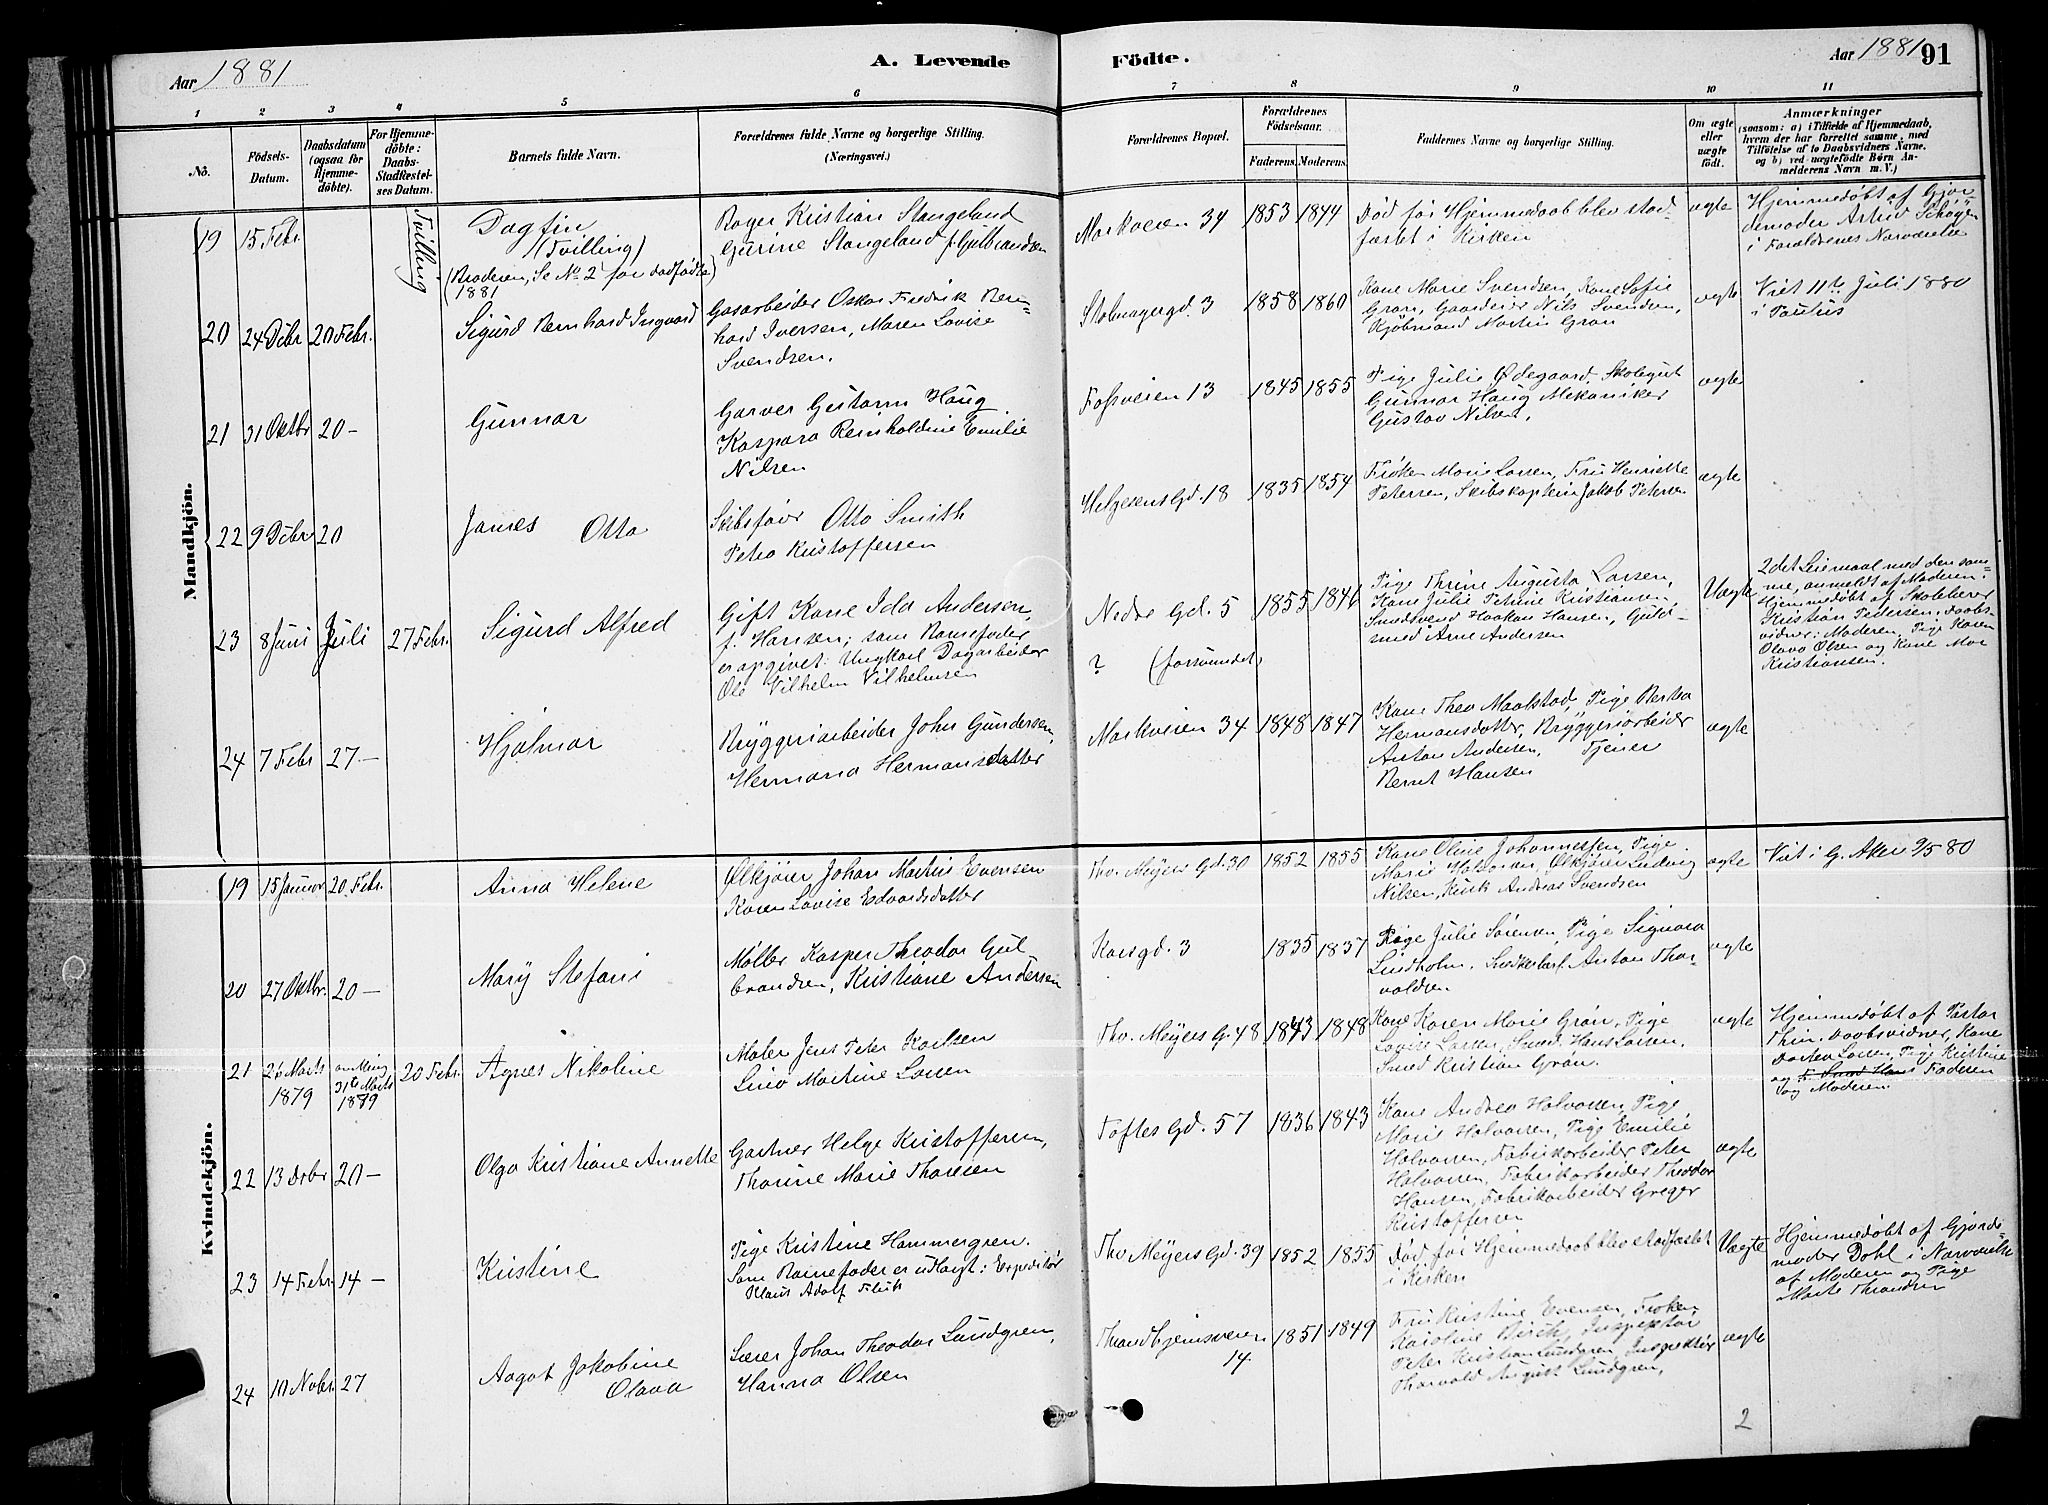 Aar 1881
A. Levende
Födte.
Aar 1881
91
1 2 3 4 5 6 7 8 9 10 11
No.
Födsels-
Datum.
Daabsdatum
(ogsaa for
Hjemme-
døbte).
For Hjemme-
döbte:
Daabs-
Stadfæstel-
ses Datum.
Barnets fulde Navn.
Forældrenes fulde Navne og borgerlige Stilling.
(Næringsvei.)
Forældrenes Bopæl.
Forældrenes
Födselsaar.
Faderens. Moderens.
Faddernes Navne og borgerlige Stilling.
Om ægte
eller
uægte
født.
Anmærkninger
(saasom: a) i Tilfælde af Hjemmedaab,
hvem der har forrettet samme, med
Tilføielse af to Daabsvidners Navne,
og b) ved uægtefødte Børn An-
melderens Navn m. V.)
Mandkjön.
19 15 Febr
Tvilling
Dagfin
(Tvilling)
(Broderen, Se No 2 for dødfødte)
1881
Roger Kristian Stangeland
Gurine Stangeland f. Gulbrandsen
Markveien 34 1853 1844
Død før Hjemmedaab blev stad-
fæstet i Kirken
ægte
Hjemmedøbt af Gjor-
demoder
i Forældrenes Nærværelse
20 24 Dcbr 20 Febr.
Sigurd Bernhard Ingvard
Gasarbeider Oskar Fredrik Bern-
hard Iversen, Maren Lovise
Svendsen.
Stolmagergd. 3 1858 1860
Kone Marie Svendsen, Kone Sofie
Grøn, Gaardeier Nils Svendsen,
Kjøbmand Martin Grøn
ægte
Viet 11te Juli 1880
i Paulus
21 31 Oktbr 20 -
Gunnar
Garver Gustav Haug
Kaspara Reinholdine Emilie
Nilsen
Fossveien 13 1845 1855
Pige Julie Ødegaard, Skolegut
Gunnar Haug Mekaniker
Gustav Nilsen.
ægte
22 9 Dcbr 20
James Otto
Skibsfører Otto Smith
Petra Kristoffersen
Helgesens Gd. 18 1835 1854
Frøken Marie Larsen, Fru Henriette
Petersen, Skibskaptein Jakob Petersen
ægte
23 8 Juni Juli 27 Febr.
Sigurd Alfred
Gift Kone Ida Andersen,
f. Hansen; som Barnefader
er opgivet: Ungkarl Dagarbeider
Ole Vilhelm Vilhelmsen
Nedre Gd. 5
? (forsvundet)
1855 1846
Pige Thrine Augusta Larsen,
Kone Julie Petrine Kristiansen
Smedsvend Haakon Hansen, Guld-
smed Arne Andersen
Uægte
2det Leiermaal med den sam-
me, anmeldt af Moderen.
Hjemmedøbt af Skolelærer
Kristian Pedersen. Daabs-
vidner: Moderen, Pige Karen
Olava Olsen og Kone Mar
Kristiansen.
24 7 Febr 27 -
Hjalmar
Bryggeriarbeider John Gundersen,
Hermana Hermansdatter
Markveien 34 1848 1847
Kone Thea Maalstad, Pige Bertha
Hermansdatter, Bryggeriarbeider
Anton Andersen, Tjener
Bernt Hansen
ægte
Kvindekjön.
19 15 Januar 20 Febr.
Anna Helene
Ølkjører Johan Martin Evensen
Karen Lovise Edvardsdatter
Thv. Meyers Gd. 30 1852 1855
Kone Oline Johannessen, Pige
Marie Halvorsen, Ølkjører Ludvig
Nilsen, Kusk Andreas Svendsen
ægte
Viet i G. Aker 9/5 80
20 27 Oktbr. 20 -
Mary Stefani
Møller Kasper Theodor Gul-
brandsen, Kristiane Andersen
Korsgd. 3 1835 1837
Pige Julie Sørensen, Pige Signora
Lindholm, Snedkerlærl. Anton Thor-
valdsen
ægte
21 26 Marts
1879
31te Marts
1879
20 Febr.
Agnes Nikoline
Maler Jens Peter Karlsen
Lina Martine Larsen
Thv. Meyers G. 48 1843 1848
Kone Karen Marie Grøn, Pige
Lovise Larsen, Smed Hans Larsen,
Smed Kristian Grøn.
ægte
Hjemmedøbt af Pastor
Thrin, Daabsvidner, Kone
Dorthea Larsen, Pige Kristine
og Faderen
og Moderen.
22 13 Dcbr 20 -
Olga Kristiane Annette
Gartner Helge Kristoffersen,
Thorine Marie Thoresen
Toftes Gd. 57 1836 1843
Kone Andrea Halvorsen, Pige
Marie Halvorsen, Pige Emilie
Halvorsen, Fabrikarbeider Peter
Halvorsen, Fabrikarbeider Theodor
Hansen, Fabrikarbeider Greger
Kristoffersen
ægte
23 14 Febr 14 -
Kristine
Pige Kristine Hammergren.
Som Barnefader er udlagt: Expeditør
Klaus Adolf Flisk
Thv. Meyers Gd. 39 1852 1855
Død før Hjemmedaab blev stadfæstet
i Kirken
Uægte
Hjemmedøbt af Gjorde-
moder Dahl i Nærværelse
af Moderen og Pige
Marte Thrandsen
24 10 Novbr. 27
Aagot Jakobine
Olava
Lærer Johan Theodor Lundgren,
Hanna Olsen
Thrandhjemsveien
14.
1851 1849
Fru Kristine Evensen, Frøken
Karoline Birch, Inspektør
Peter Kristian Lundgren, Inspektør
Thorvald August Lundgren,
ægte
2